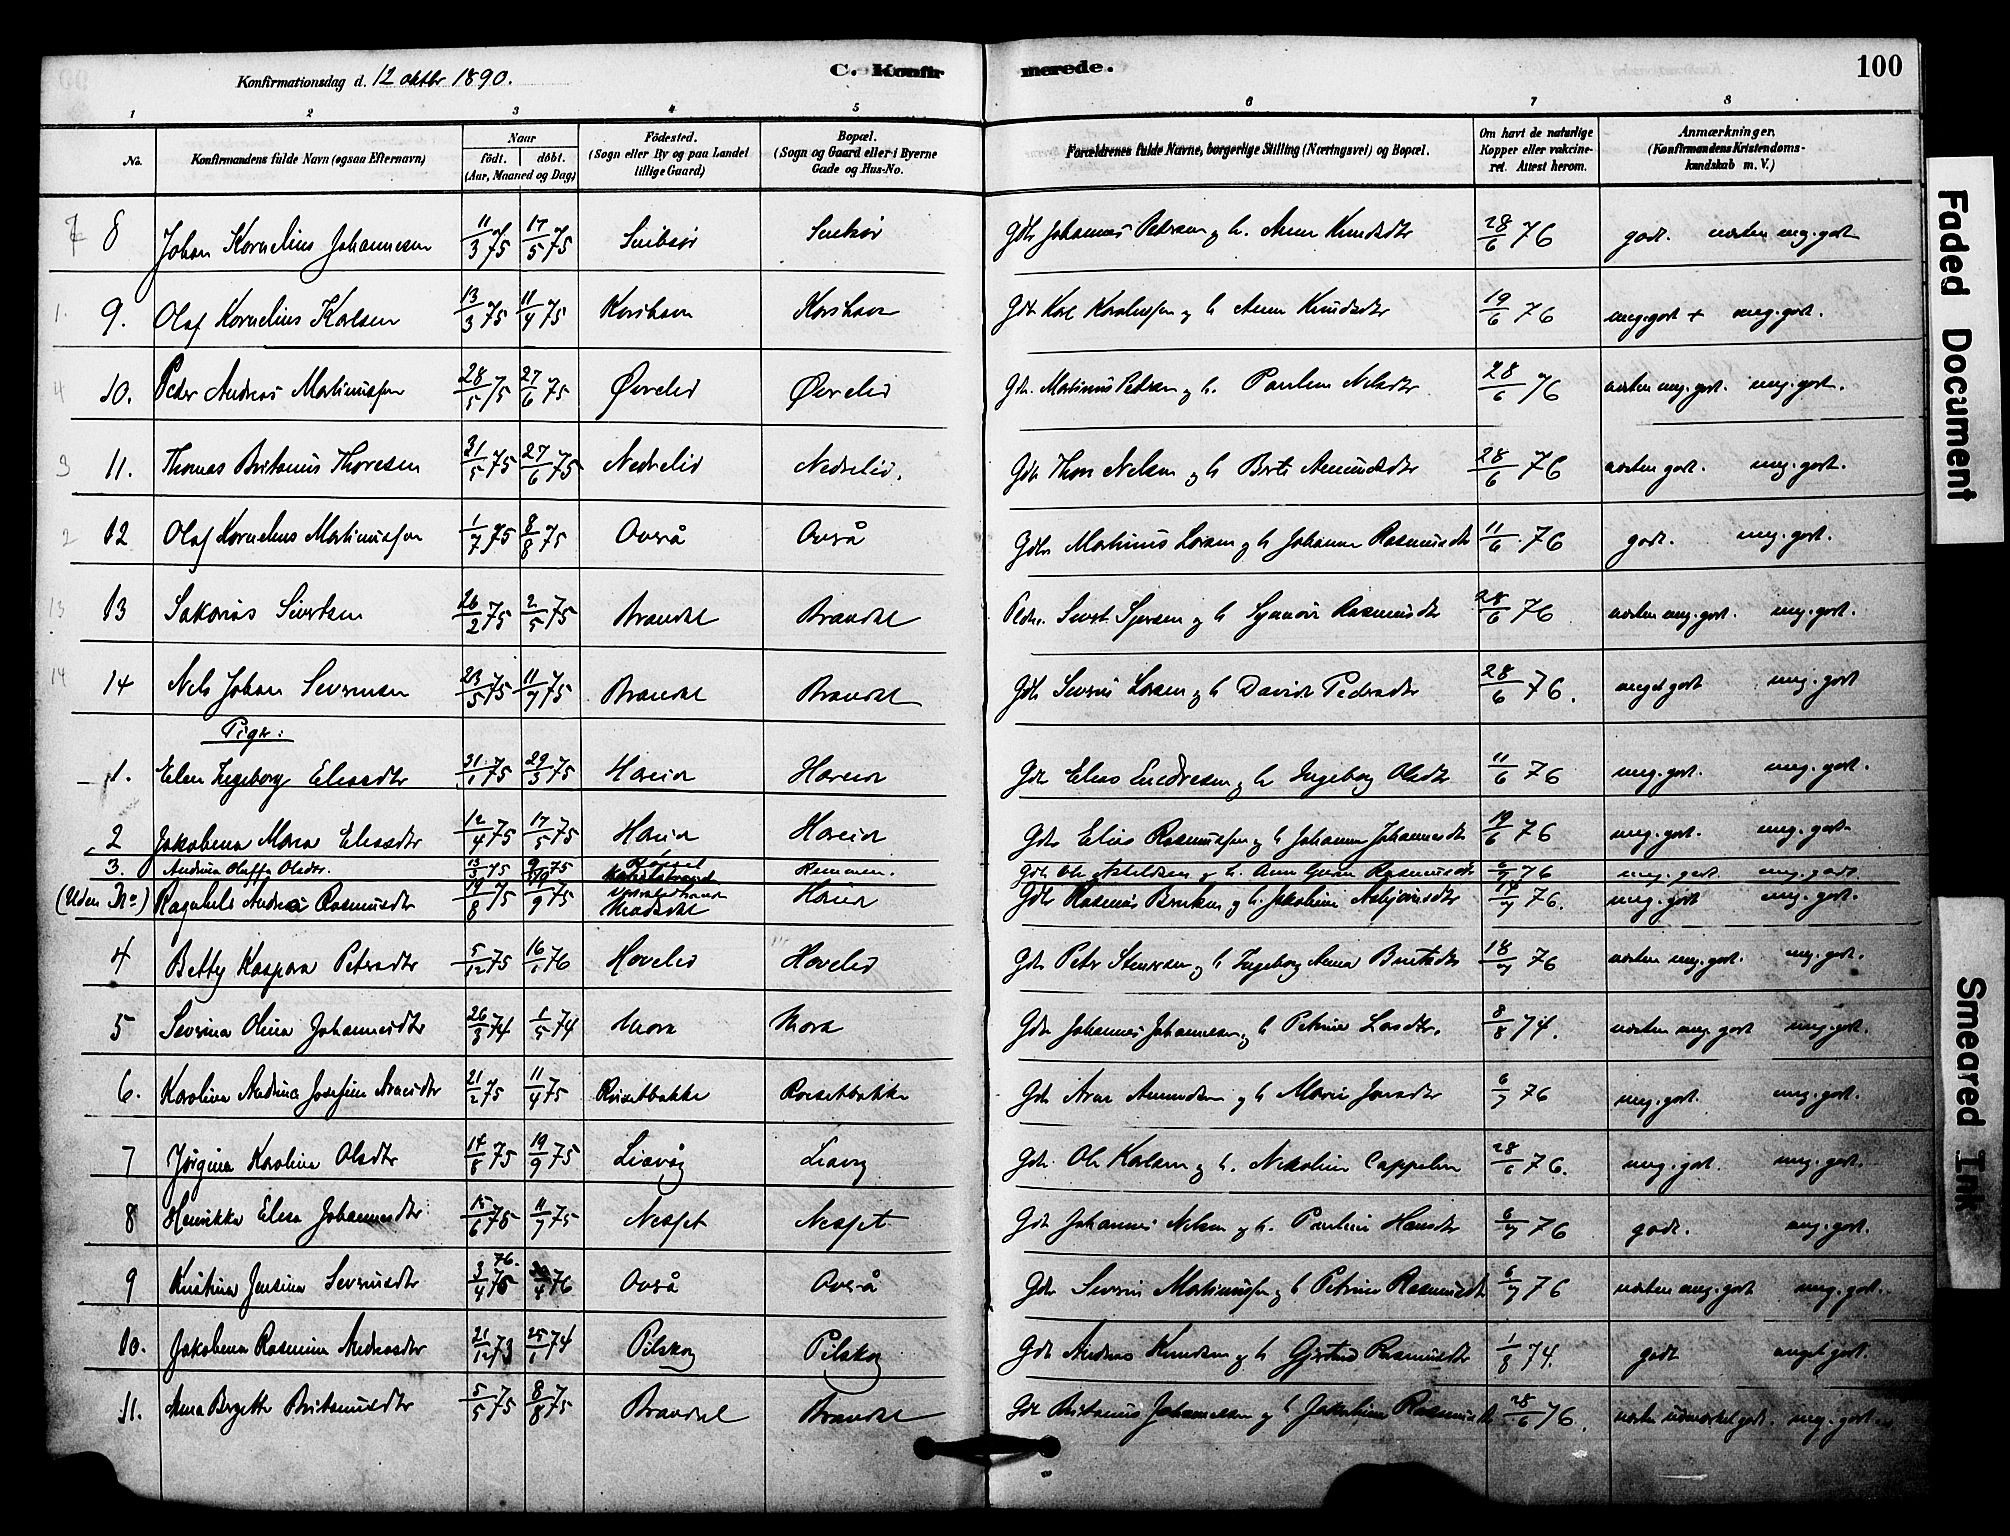 Konfirmationsdag d. 12 oktbr 1890.
C. Konfirmerede.
100
1 2 3 4 5 6 7 8
No.
Konfirmandens fulde Navn (ogsaa Efternavn)
Naar
födt. döbt.
(Aar, Maaned og Dag)
Födested.
(Sogn eller By og paa Landet
tillige Gaard)
Bopæl.
(Sogn og Gaard eller i Byerne
Gade og Hus-No.
Forældrenes fulde Navne, borgerlige Stilling (Næringsvei) og Bopæl.
Om havt de naturlige
Kopper eller vakcine-
ret. Attest herom.
Anmærkninger.
(Konfirmandens Kristendoms-
kundskab m. V.)
8 Johan Kornelius Johannesen 11/3 75 17/5 75 Gdbr Johannes Pedersen og h. Anne Knudsdtr 28/6 76 godt. næsten meg. godt
1. 9. Olaf Kornelius Karlsen 13/3 75 11/4 75 Korshavn Korshavn Gdbr Karl Knudsdtr 19/6 76 meg. godt + meg. godt.
4 10. Peder Andreas Martinussen 28/5 75 27/6 75 Øvrelid Øvrelid Gdbr. Martinus Pedersen og h. Pauline Nelsdtr 28/6 76 næsten meg. godt. meg. godt.
3 11. Thomas Bertanius Thoresen 31/5 75 27/6 75 Nedrelid Nedrelid. Gdbr Thore Nelsen og h. Berte Amundsdtr 28/6 76 næsten godt. meg. godt.
2 12 Olaf Kornelius Martinussen 1/7 75 8/8 75 Overå Overå Gdbr Martinus Larsen og h Johanne Rasmusdtr 11/6 76 godt. meg. godt.
13 13 Sakarias Sivertsen 26/2 75 2/5 75 Brandal Brandal Sivert og h Synnøve Rasmusdtr 28/6 76 næsten meg. godt. meg. godt.
14 14 Nels Johan Severinsen 23/5 75 11/7 75 Brandal Brandal Gdbr Severin Larsen og h David Pedersdtr 28/6 76. meget godt meg. godt
Piger:
1. Elen Ingeborg Eliasdtr 31/1 75 29/3 75 Hareid Hareid Gdbr Elias Endresen og h Ingeborg Olsdtr 11/6 76 meg. godt. meg. godt.
2 Jakobine Marie Eliasdtr 12/4 75 17/5 75 Hareid Hareid Gdbr Elias Rasmussen og h Johanne Johannesdtr 19/6 76 meg. godt. meg. godt.
3. Andrea Olaffa Olsdtr. 13/3 75 75 Remmen. Gdbr Ole og h. Rasmusdtr 76 meg. godt meg. godt
(Uden No) Ragnhild Andrea Rasmusdtr 19/8 75 /9 75 Hareid Gdbr Rasmus og h. Jakobine Asbjørnsdtr 76. meg. godt meg. godt.
4 Betty Kaspara Petersdtr 5/12 75 16/1 76 Hovelid Hovelid Gdbr Peter Stensen og h Ingeborg Anna 18/7 76 næsten meg. godt. meg. godt.
5 Severina Olina Johannesdtr 26/3 74 1/5 74 Mork Mork Gdbr Johannes Johannesen og h Petrine Larsdtr. 8/8 74. næsten meg. godt meg. godt.
6. Karoline Andrina Josefine 21/2 75 11/4 75 Riisetbakke Roesetbakke Gdbr Arne Amundsen og h Marie Jonsdtr 6/7 76 meg. godt. meg. godt.
7 Jørgine Karoline Olsdtr 14/8 75 19/9 75 Liavåg Liavåg Gdbr Ole Karlsen og h. Nikoline Cappelen 28/6 76. meg. godt. meg. godt.
8 Henrikke Elesa Johannesdtr 15/6 75 11/7 75 Nesset Nesset Gdbr Johannes Nelsen og h. Pauline Hansdtr 6/7 76 godt. meg. godt.
9 Kristine Jensine Severinsdtr 3/4 76. /4 76 Overå Overå Gdbr Severin Martinussen og h Petrine Rasmusdtr 6/7 76 næsten meg. godt meg. godt.
10. Jakobine Rasmine Andreasdtr 21/12 73 25/1 74 Pilskog Pilskog Gdbr Andreas Knudsen og h Gjertrud Rasmusdtr 1/8 74. godt meget godt.
11. Anna Bergette Bertanusdtr 5/5 75 8/8 75 Brandal Brandal Gdbr Bertanius Johannesen og h Rasmusdtr 28/6 76. næsten udmærket godt. meg. godt.
Faded Document
Smeared Ink